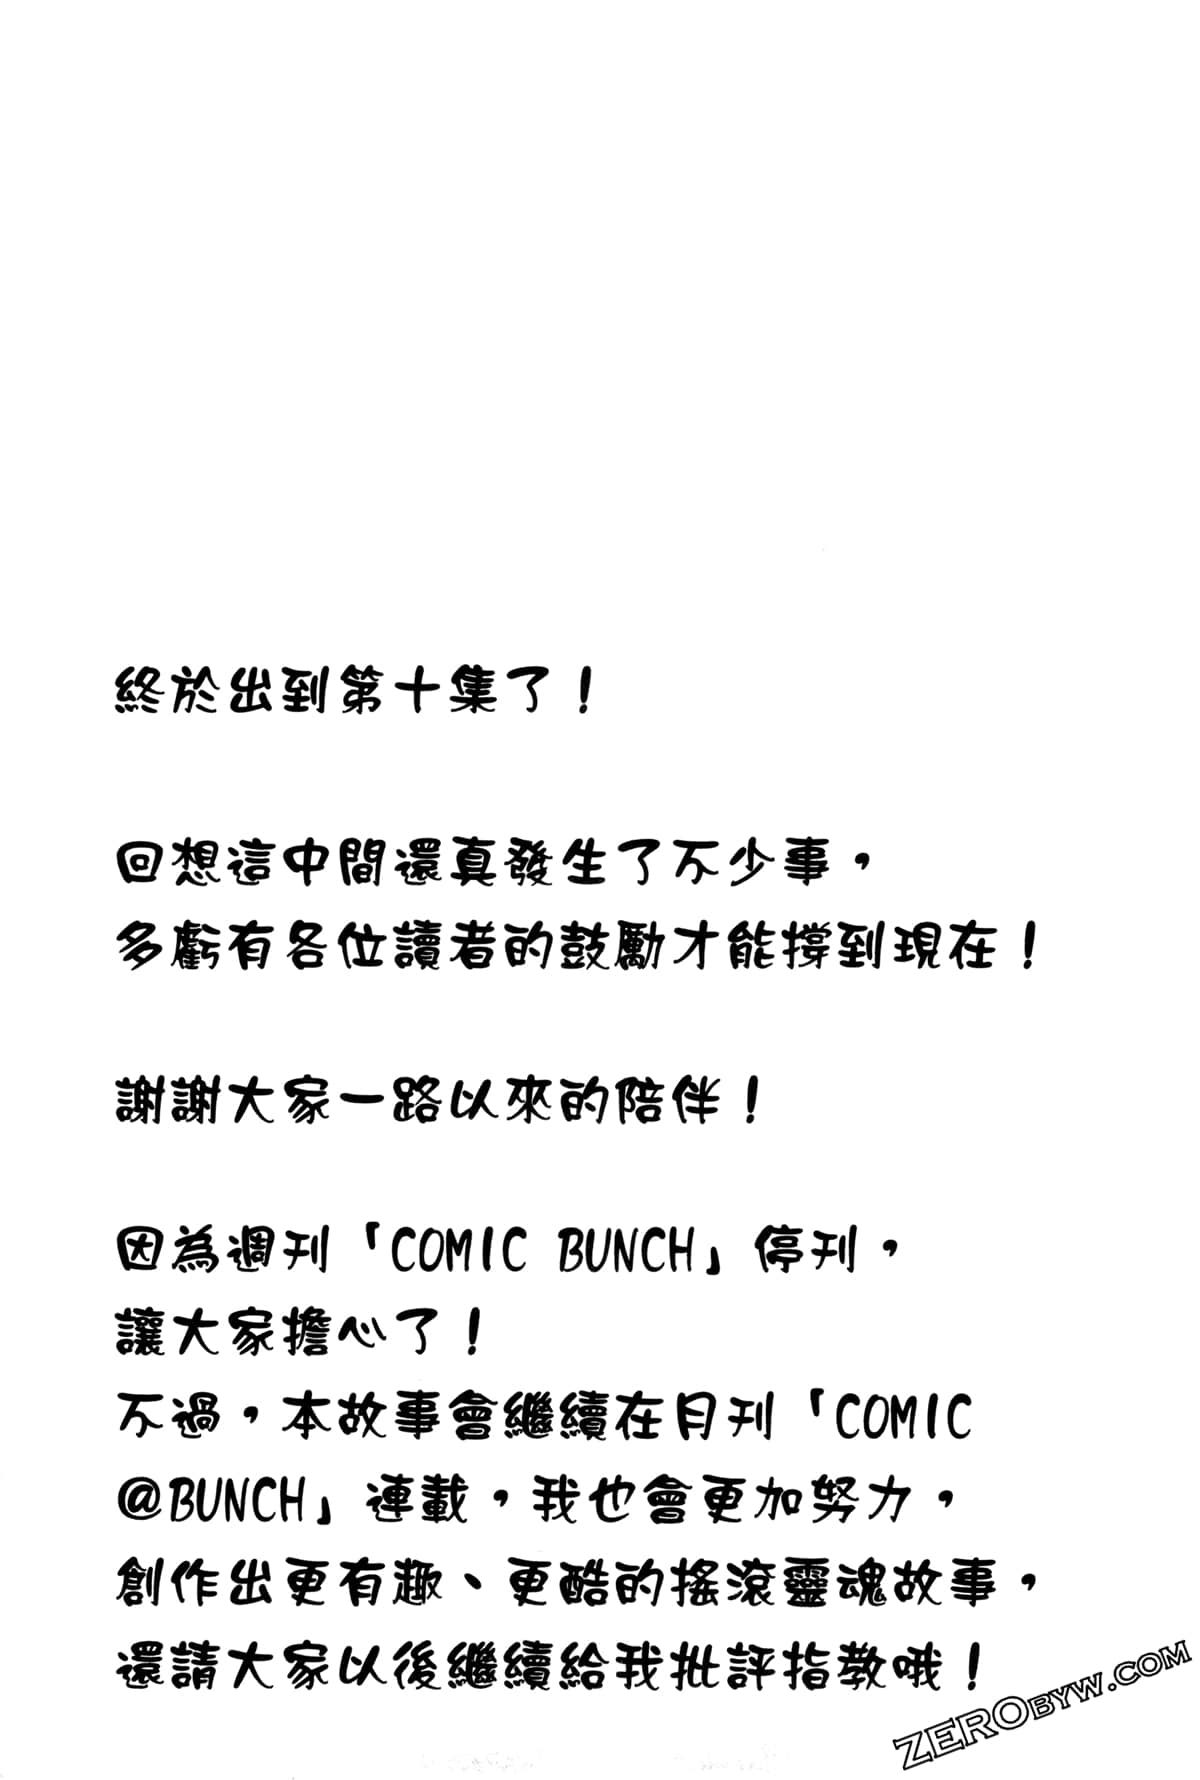 終於出到第十集了！
回想這中間還真發生了不少事，
多虧有各位讀者的鼓勵才能撐到現在！
謝謝大家一路以來的陪伴！
因為週刊「COMIC BUNCH」停刊，
讓大家擔心了！
不過，本故事會繼續在月刊「COMIC
@BUNCH」連載，我也會更加努力，
創作出更有趣、更酷的搖滾靈魂故事，
還請大家以後繼續給我批評指教哦！
ZEROBYW.COM